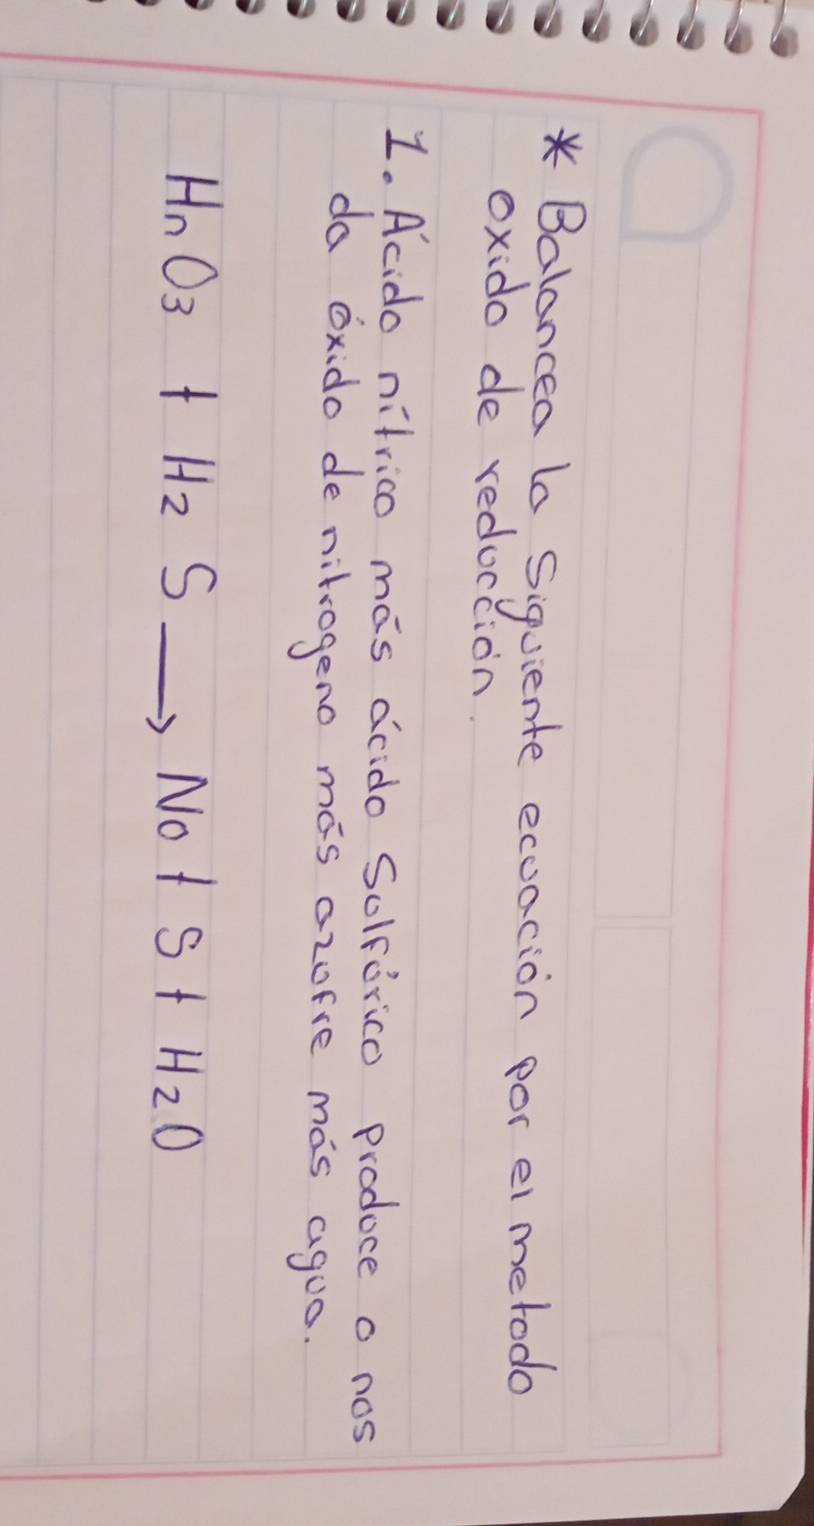 * Balancea la siguiente ecuación por el metodo
oxido de reducción.
1. Ácido nítrico más ácido Sulfúrico produce o nos
da óxido de nitrogeno más azufre más agua.
HnO₃ + H₂S → No + S + H₂O